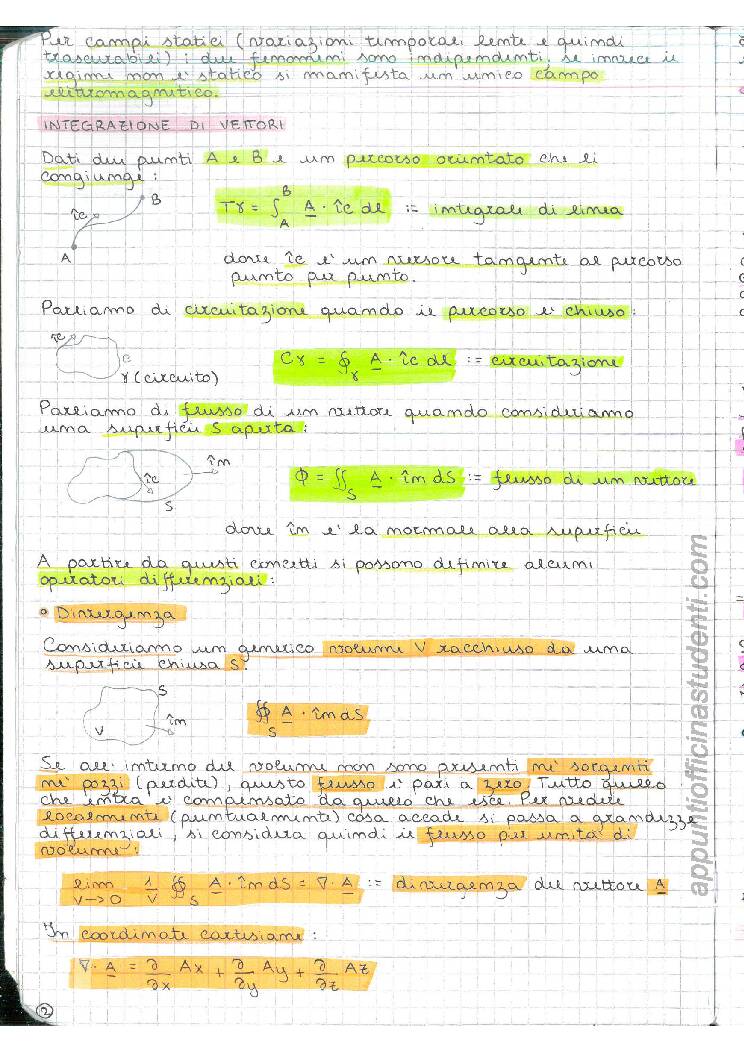 Per campi statici (variazioni temporali lente e quindi
trascurabili) i due fenomeni sono indipendenti, se invece il
regime non è statico si manifesta un unico campo
elettromagnetico.
INTEGRAZIONE DI VETTORI
Dati due punti A e B e un percorso orientato che li
congiunge:
B
îc
A
Tγ = ∫_A^B A · îc dl := integrale di linea
dove îc è un versore tangente al percorso
punto per punto.
Parliamo di circuitazione quando il percorso è chiuso:
îc
c
γ (circuito)
Cγ = ∮_γ A · îc dl := circuitazione
Parliamo di flusso di un vettore quando consideriamo
una superficie S aperta:
îc
în
S
Φ = ∬_S A · în dS := flusso di un vettore
dove în è la normale alla superficie
A partire da questi concetti si possono definire alcuni
operatori differenziali:
• Divergenza
Consideriamo un generico volume V racchiuso da una
superficie chiusa S.
S
V
în
∯_S A · în dS
Se all'interno del volume non sono presenti né sorgenti
né pozzi (perdite), questo flusso è pari a zero. Tutto quello
che entra è compensato da quello che esce. Per vedere
localmente (puntualmente) cosa accade si passa a grandezze
differenziali, si considera quindi il flusso per unità di
volume:
lim_{V→0} 1/V ∯_S A · în dS = ∇ · A := divergenza del vettore A
In coordinate cartesiane:
∇ · A = ∂/∂x Ax + ∂/∂y Ay + ∂/∂z Az
2
appuntiofficinastudenti.com